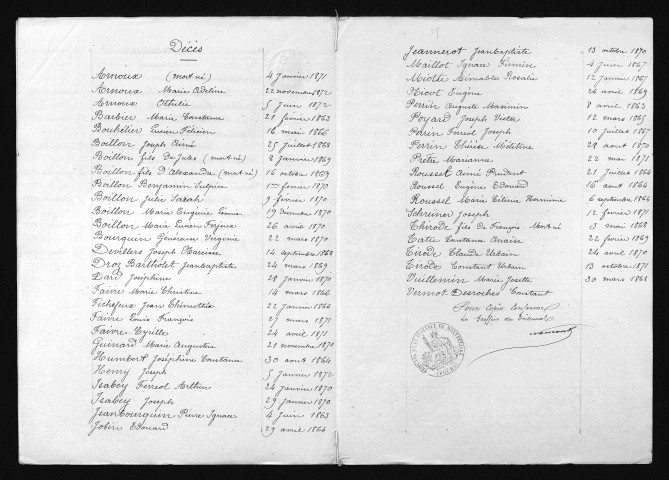 Décès
Arnoux (mort-né) 4 janvier 1871
Arnoux Marie Adeline 22 novembre 1872
Arnoux Othilie 5 juin 1872
Barbier Marie Constance 21 février 1863
Bouchelier Lucien Félicien 16 mai 1866
Boillon Joseph Aimé 25 juillet 1868
Boillon fils de Jules (mort-né) 8 janvier 1869
Boillon fils d'Alexandre (mort-né) 16 octobre 1869
Boillon Benjamin Sulpice 1er février 1870
Boillon Julie Sarah 9 février 1870
Boillon Marie Eugénie 19 décembre 1870
Boillon Marie Lucien Ferjeux 26 avril 1870
Bourquin Généreux Virginie 22 mars 1870
Devillers Joseph Narcisse 14 septembre 1868
Droz Bartholet Jeanbaptiste 24 mars 1869
Dard Joséphine 28 janvier 1870
Faivre Marie Christine 14 mars 1866
Fichefeux Jean Thimothée 22 janvier 1866
Faivre Louis François 27 mars 1871
Faivre Cyrille 24 avril 1871
Guinard Marie Augustine 21 novembre 1870
Humbert Joséphine Constance 30 août 1864
Henry Joseph 5 janvier 1872
Isabey Ferréol Arthur 24 janvier 1870
Isabey Joseph 29 janvier 1870
Jeanbourquin Pierre Ignace 4 juin 1863
Jobin Edouard 29 avril 1864
Jeannerot Jeanbaptiste 13 octobre 1870
Maillot Ignace Firmin 4 juin 1867
Miotte Aimable Rosalie 12 janvier 1867
Nicot Eugène 24 avril 1869
Perrin Auguste Maximin 8 avril 1863
Poyard Joseph Victor 12 mars 1865
Perrin Ferréol Joseph 10 juillet 1867
Perrin Thérèse Mélitine 28 août 1870
Prêtre Marianne 22 mai 1871
Roussel Aimé Prudent 21 juillet 1864
Roussel Eugène Edouard 16 août 1864
Roussel Marie Hermine 6 septembre 1864
Schreiner Joseph 12 février 1871
Thirode fils de François Mort-né 3 mai 1868
Tatu Constance Anaïse 22 février 1869
Tirode Claude Urbain 24 avril 1870
Tirode Constant Urbain 13 octobre 1871
Vuillemin Marie Josette 30 mars 1868
Vermot Desroches Constant
Pour Copie Conforme
Le Greffier du Tribunal